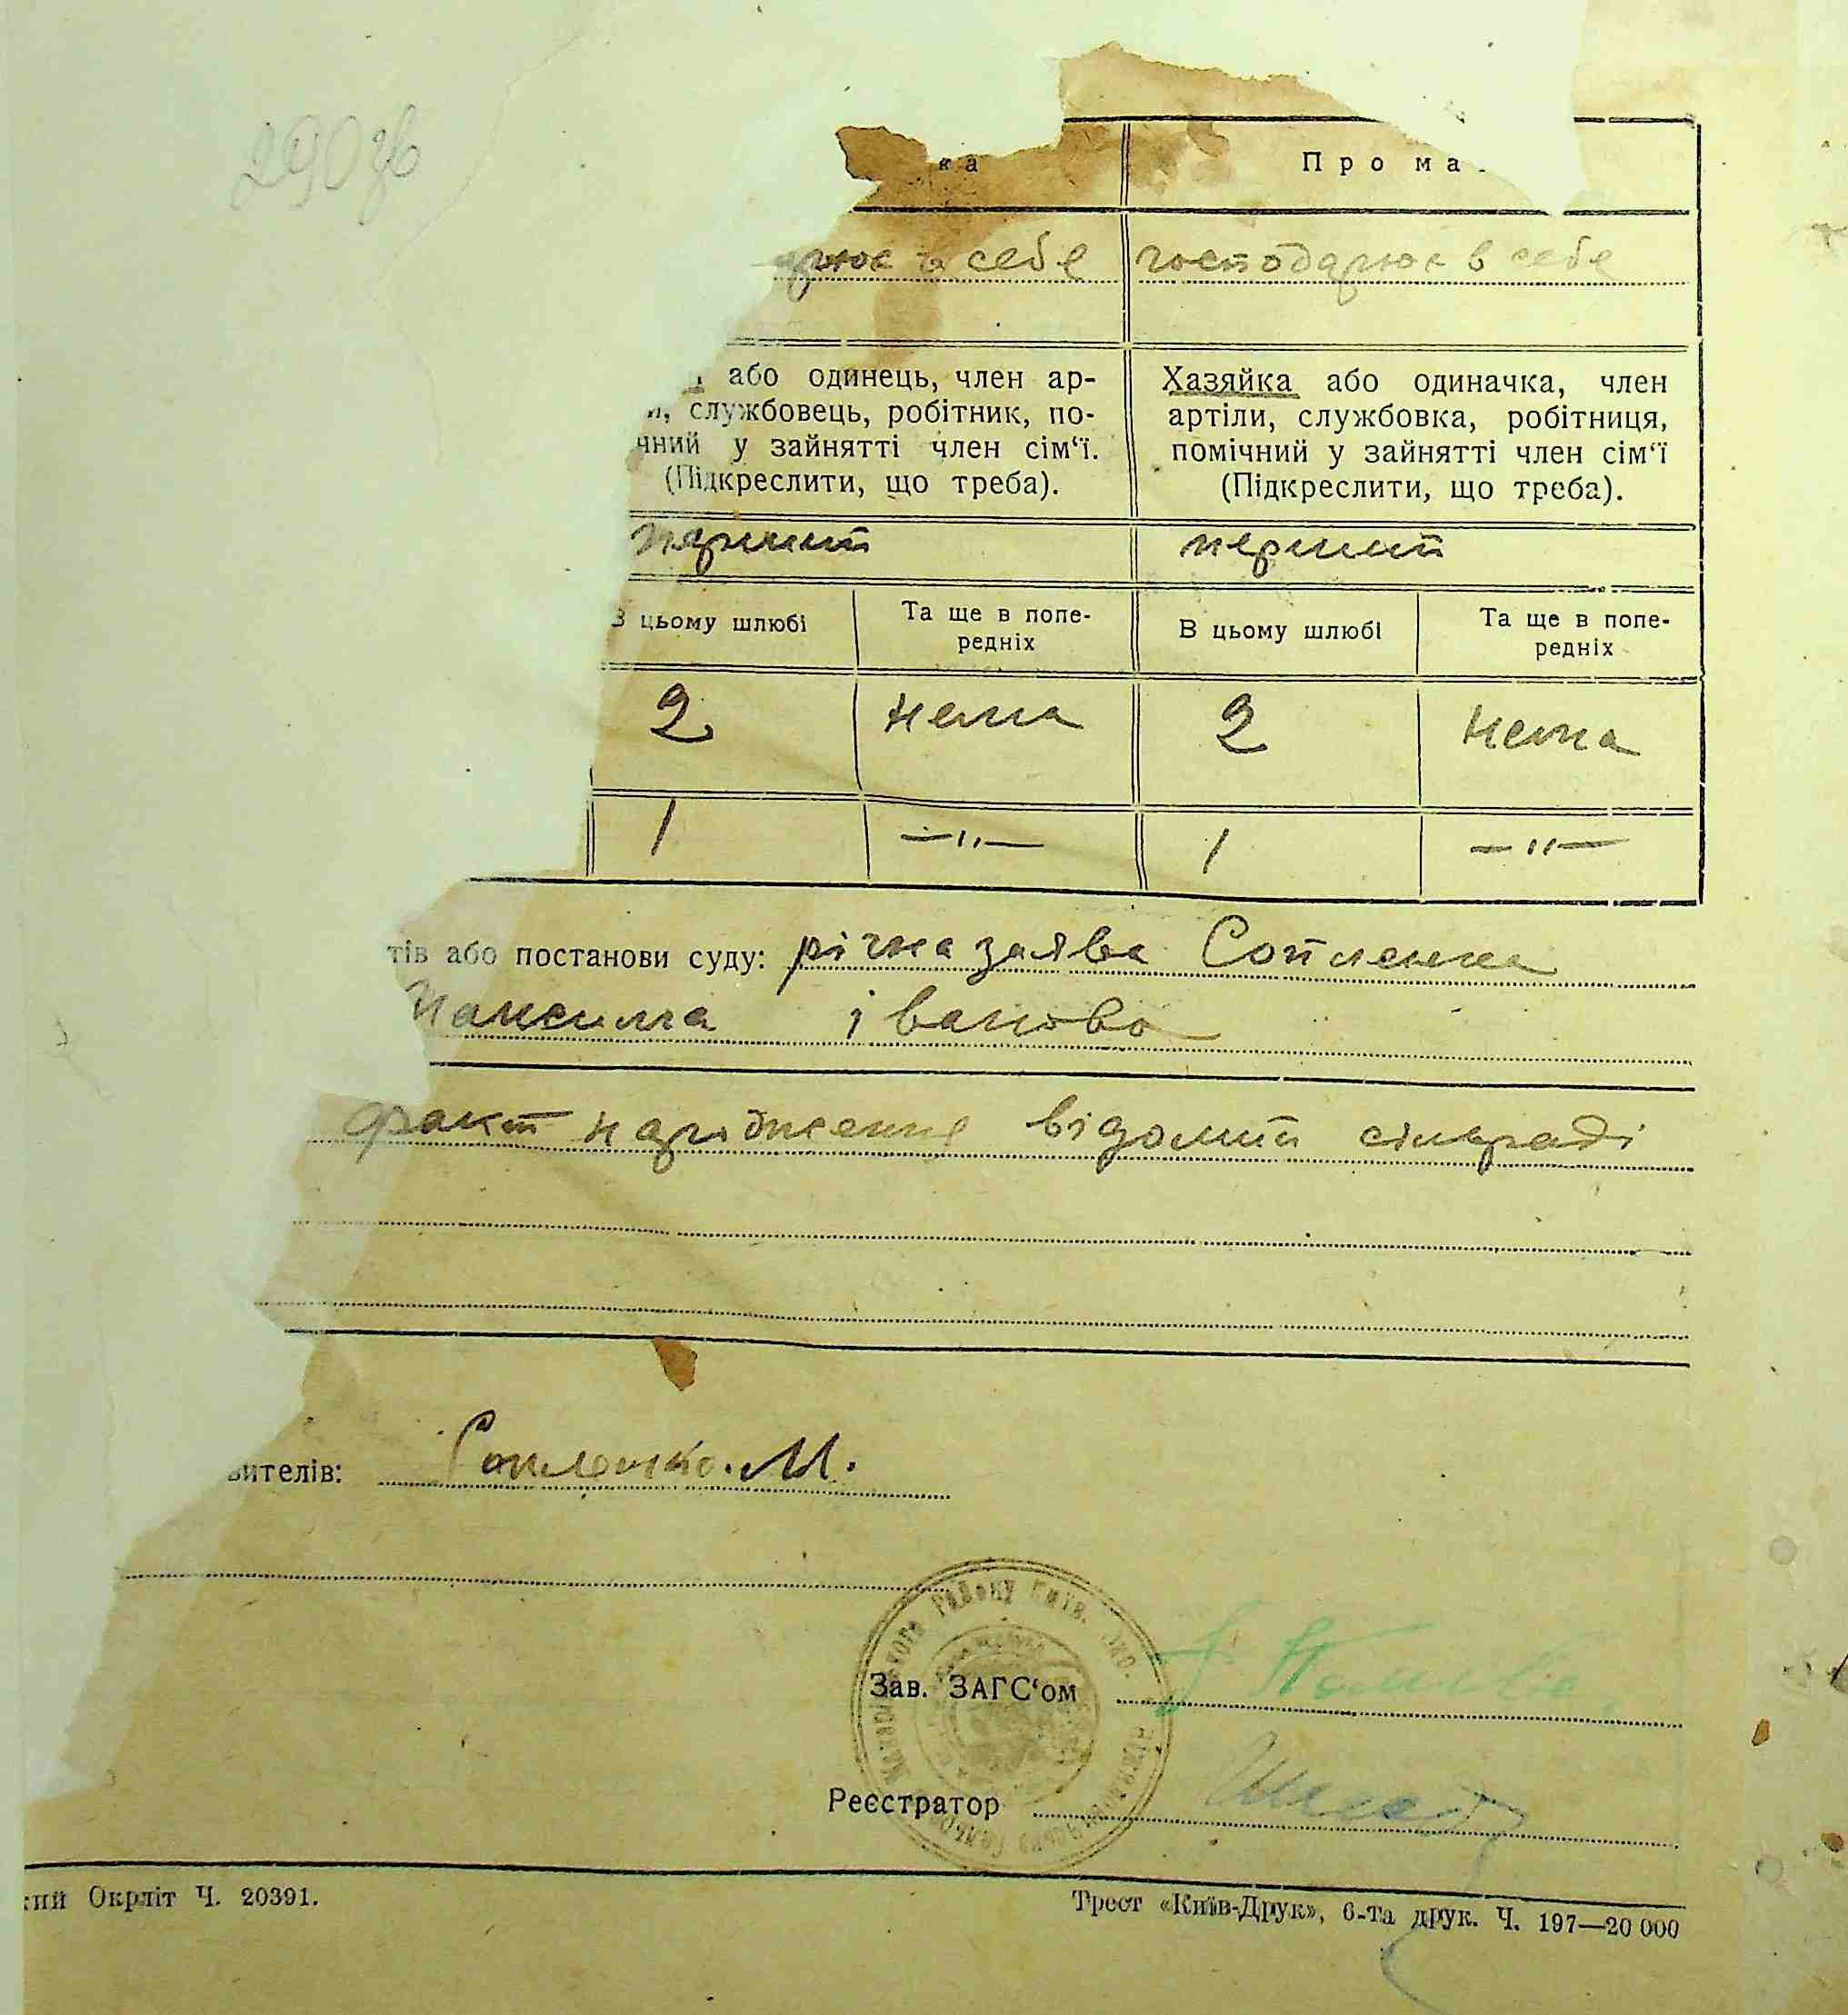 290зв
ка Про ма
рює в себе господарює в себе
або одинець, член ар-
и, службовець, робітник, по-
чний у зайнятті член сім‘ї.
(Підкреслити, що треба).
Хазяйка або одиначка, член
артіли, службовка, робітниця,
помічний у зайнятті член сім‘ї
(Підкреслити, що треба).
перший перший
В цьому шлюбі Та ще в попе-
редніх В цьому шлюбі Та ще в попе-
редніх
2 нема 2 нема
1 —"— 1 —"—
тів або постанови суду: річна заява
Максима Іванова
факт народження відомий сільраді
вителів: М.
району Київ.
Зав. ЗАГС‘ом
Реєстратор
кий Окрліт Ч. 20391.
Трест «Київ-Друк», 6-та друк. Ч. 197—20 000